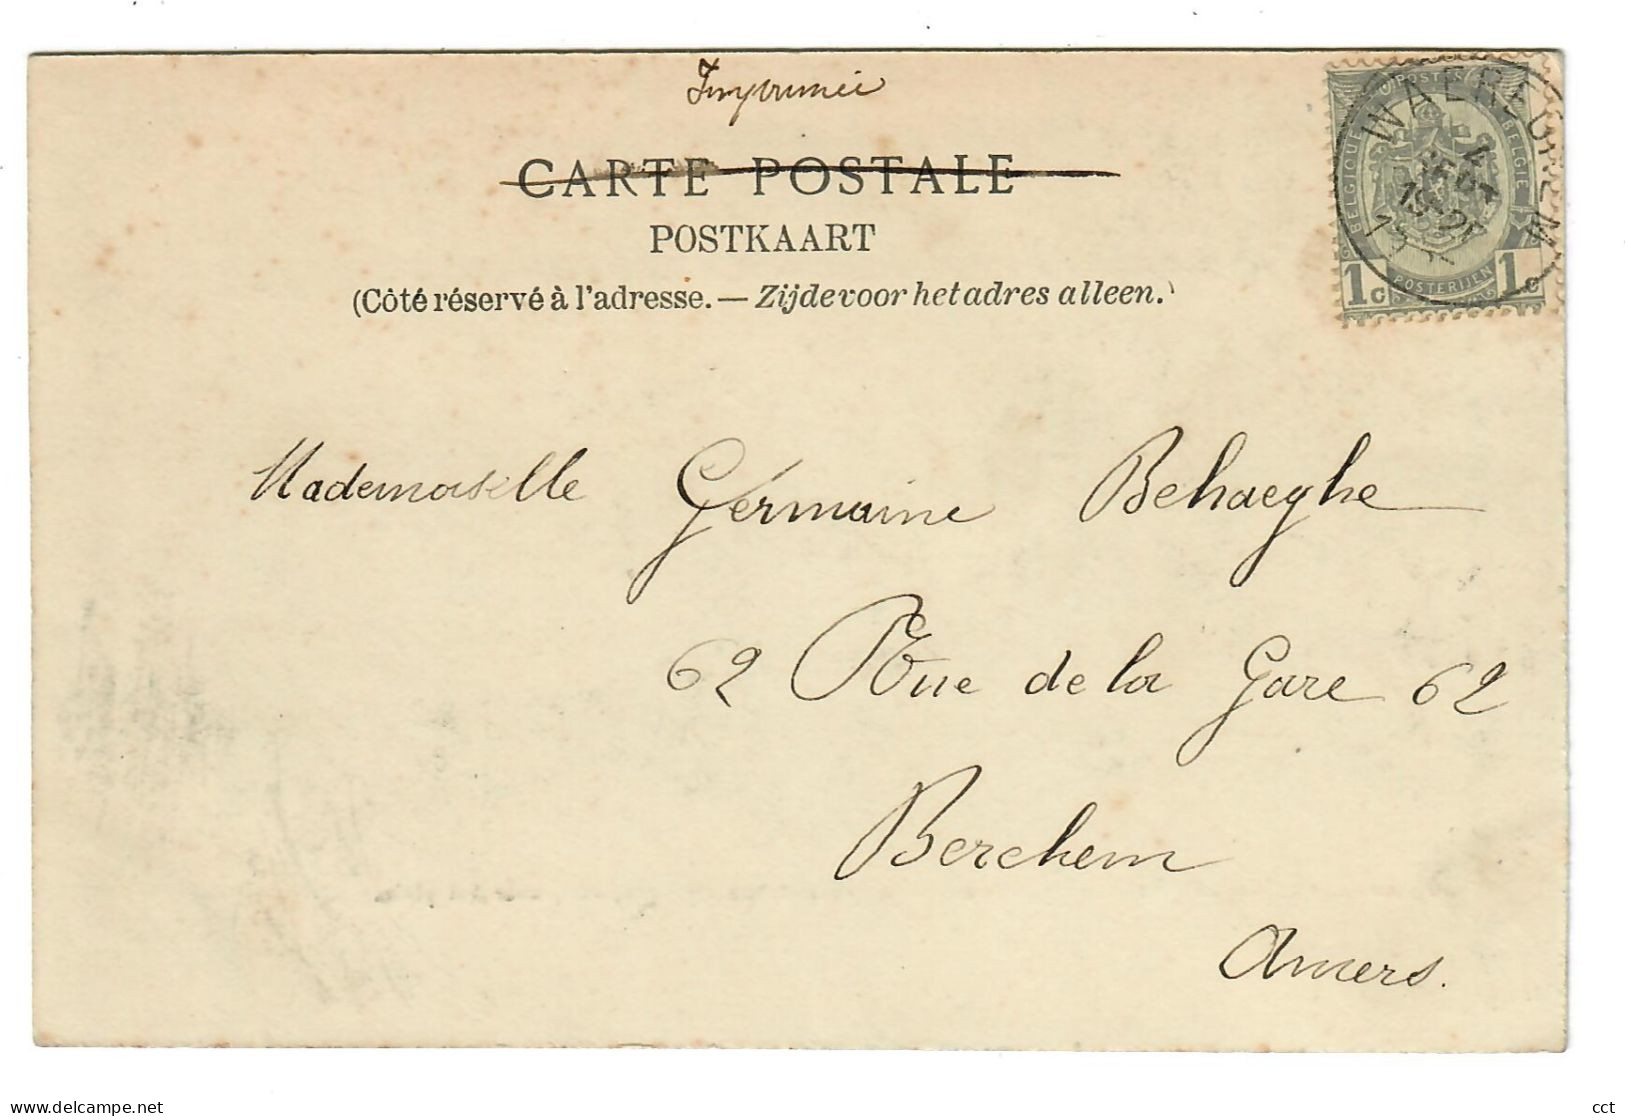 Imprimée
CARTE POSTALE
POSTKAART
(Côté réservé à l'adresse. — Zijde voor het adres alleen.)
POSTES
BELGIQUE
BELGIE
POSTERIJEN
1c 1c
WAEREGHEM
Mademoiselle Gérmaine Behaeghe
62 Rue de la Gare 62
Berchem
Anvers.
Delcampe.net
cct